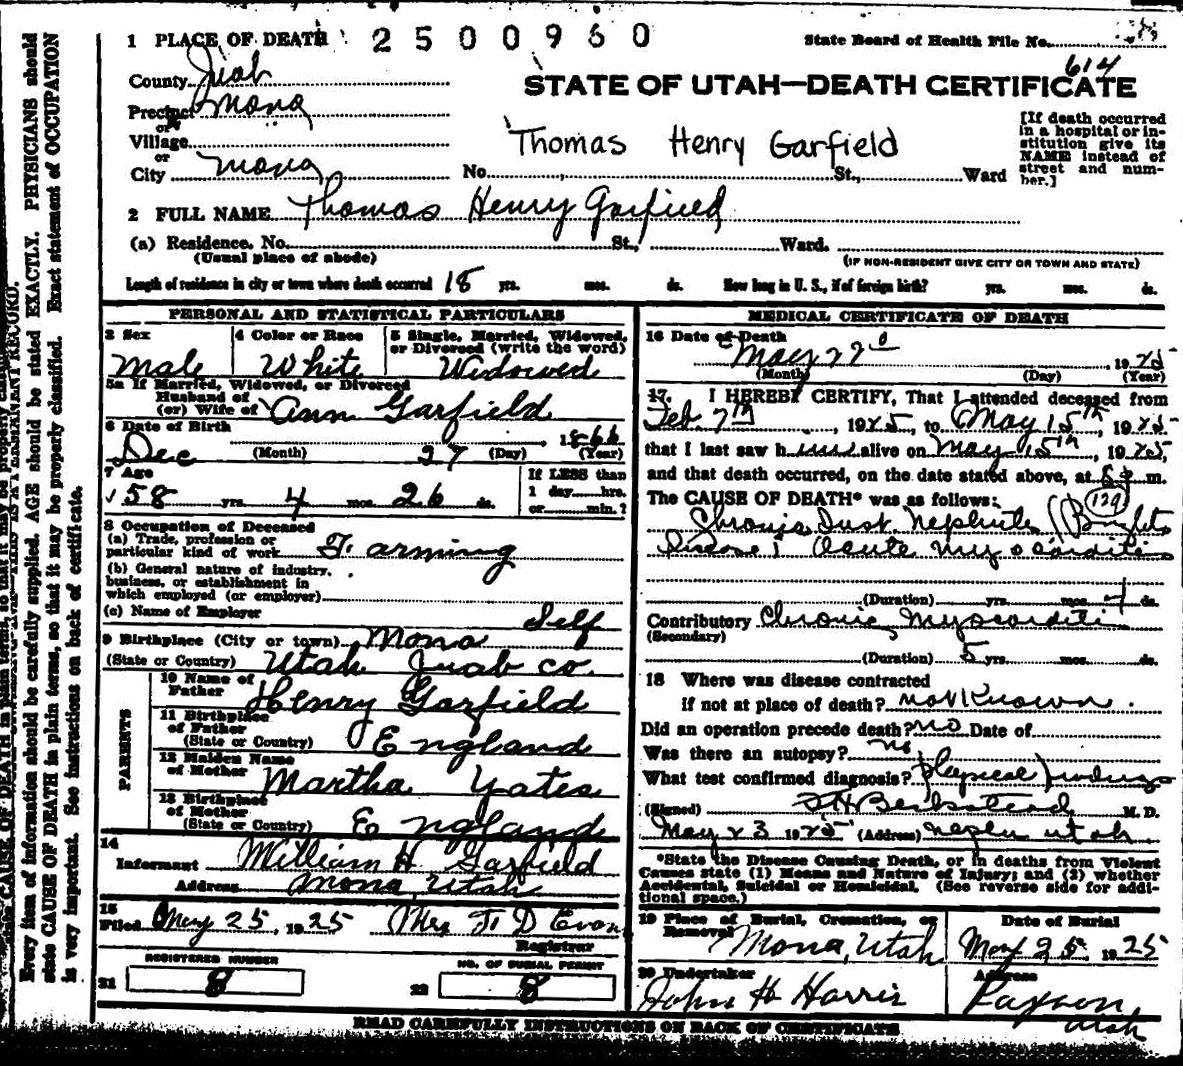 1 PLACE OF DEATH 2500960
State Board of Health File No.
614
County Juab
STATE OF UTAH—DEATH CERTIFICATE
Precinct Mona
or
Village
or
City Mona
Thomas Henry Garfield
No. St., Ward
[If death occurred
in a hospital or in-
stitution give its
NAME instead of
street and num-
ber.]
2 FULL NAME Thomas Henry Garfield
(a) Residence. No. St., Ward.
(Usual place of abode)
(IF NON-RESIDENT GIVE CITY OR TOWN AND STATE)
Length of residence in city or town where death occurred 18 yrs. mos. ds. How long in U. S., if of foreign birth? yrs. mos. ds.
PERSONAL AND STATISTICAL PARTICULARS
3 Sex
Male
4 Color or Race
White
5 Single, Married, Widowed,
or Divorced (write the word)
Widowed
5a If Married, Widowed, or Divorced
Husband of
(or) Wife of Ann Garfield
6 Date of Birth
Dec (Month) 27 (Day) 1866 (Year)
7 Age
58 yrs. 4 mos. 26 ds.
If LESS than
1 day hrs.
or min.?
8 Occupation of Deceased
(a) Trade, profession or
particular kind of work Farming
(b) General nature of industry,
business, or establishment in
which employed (or employer)
(c) Name of Employer Self
9 Birthplace (City or town) Mona
(State or Country) Utah Juab Co.
PARENTS
10 Name of
Father Henry Garfield
11 Birthplace
of Father
(State or Country) England
12 Maiden Name
of Mother Martha Yates
13 Birthplace
of Mother
(State or Country) England
14
Informant William H Garfield
Address Mona, Utah
15
Filed May 25, 1925 Mrs F. D Evans
Registrar
REGISTERED NUMBER
21 8
NO. OF BURIAL PERMIT
22 8
MEDICAL CERTIFICATE OF DEATH
16 Date of Death
May 22 1925
(Month) (Day) (Year)
17. I HEREBY CERTIFY, That I attended deceased from
Feb 7th, 1925, to May 15th, 1925,
that I last saw h alive on May 15th, 1925,
and that death occurred, on the date stated above, at m.
The CAUSE OF DEATH* was as follows: 129
Chronic Inst. Nephritis (Brights
Disease) Acute myocarditis
(Duration) yrs. mos. ds.
Contributory Chronic Myocarditi
(Secondary)
(Duration) 5 yrs. mos. ds.
18 Where was disease contracted
if not at place of death? not known.
Did an operation precede death? no Date of
Was there an autopsy? no
What test confirmed diagnosis? physical findings
(Signed) M. D.
May 23 1925 (Address) Nephi Utah.
*State the Disease Causing Death, or in deaths from Violent
Causes state (1) Means and Nature of Injury; and (2) whether
Accidental, Suicidal or Homicidal. (See reverse side for addi-
tional space.)
19 Place of Burial, Cremation, or
Removal
Mona, Utah
Date of Burial
May 25 1925
20 Undertaker
John H Harris
Address
Payson,
Utah
READ CAREFULLY INSTRUCTIONS ON BACK OF CERTIFICATE
Every item of information should be carefully supplied. AGE should be stated EXACTLY. PHYSICIANS should
state CAUSE OF DEATH in plain terms, so that it may be properly classified. Exact statement of OCCUPATION
is very important. See instructions on back of certificate.